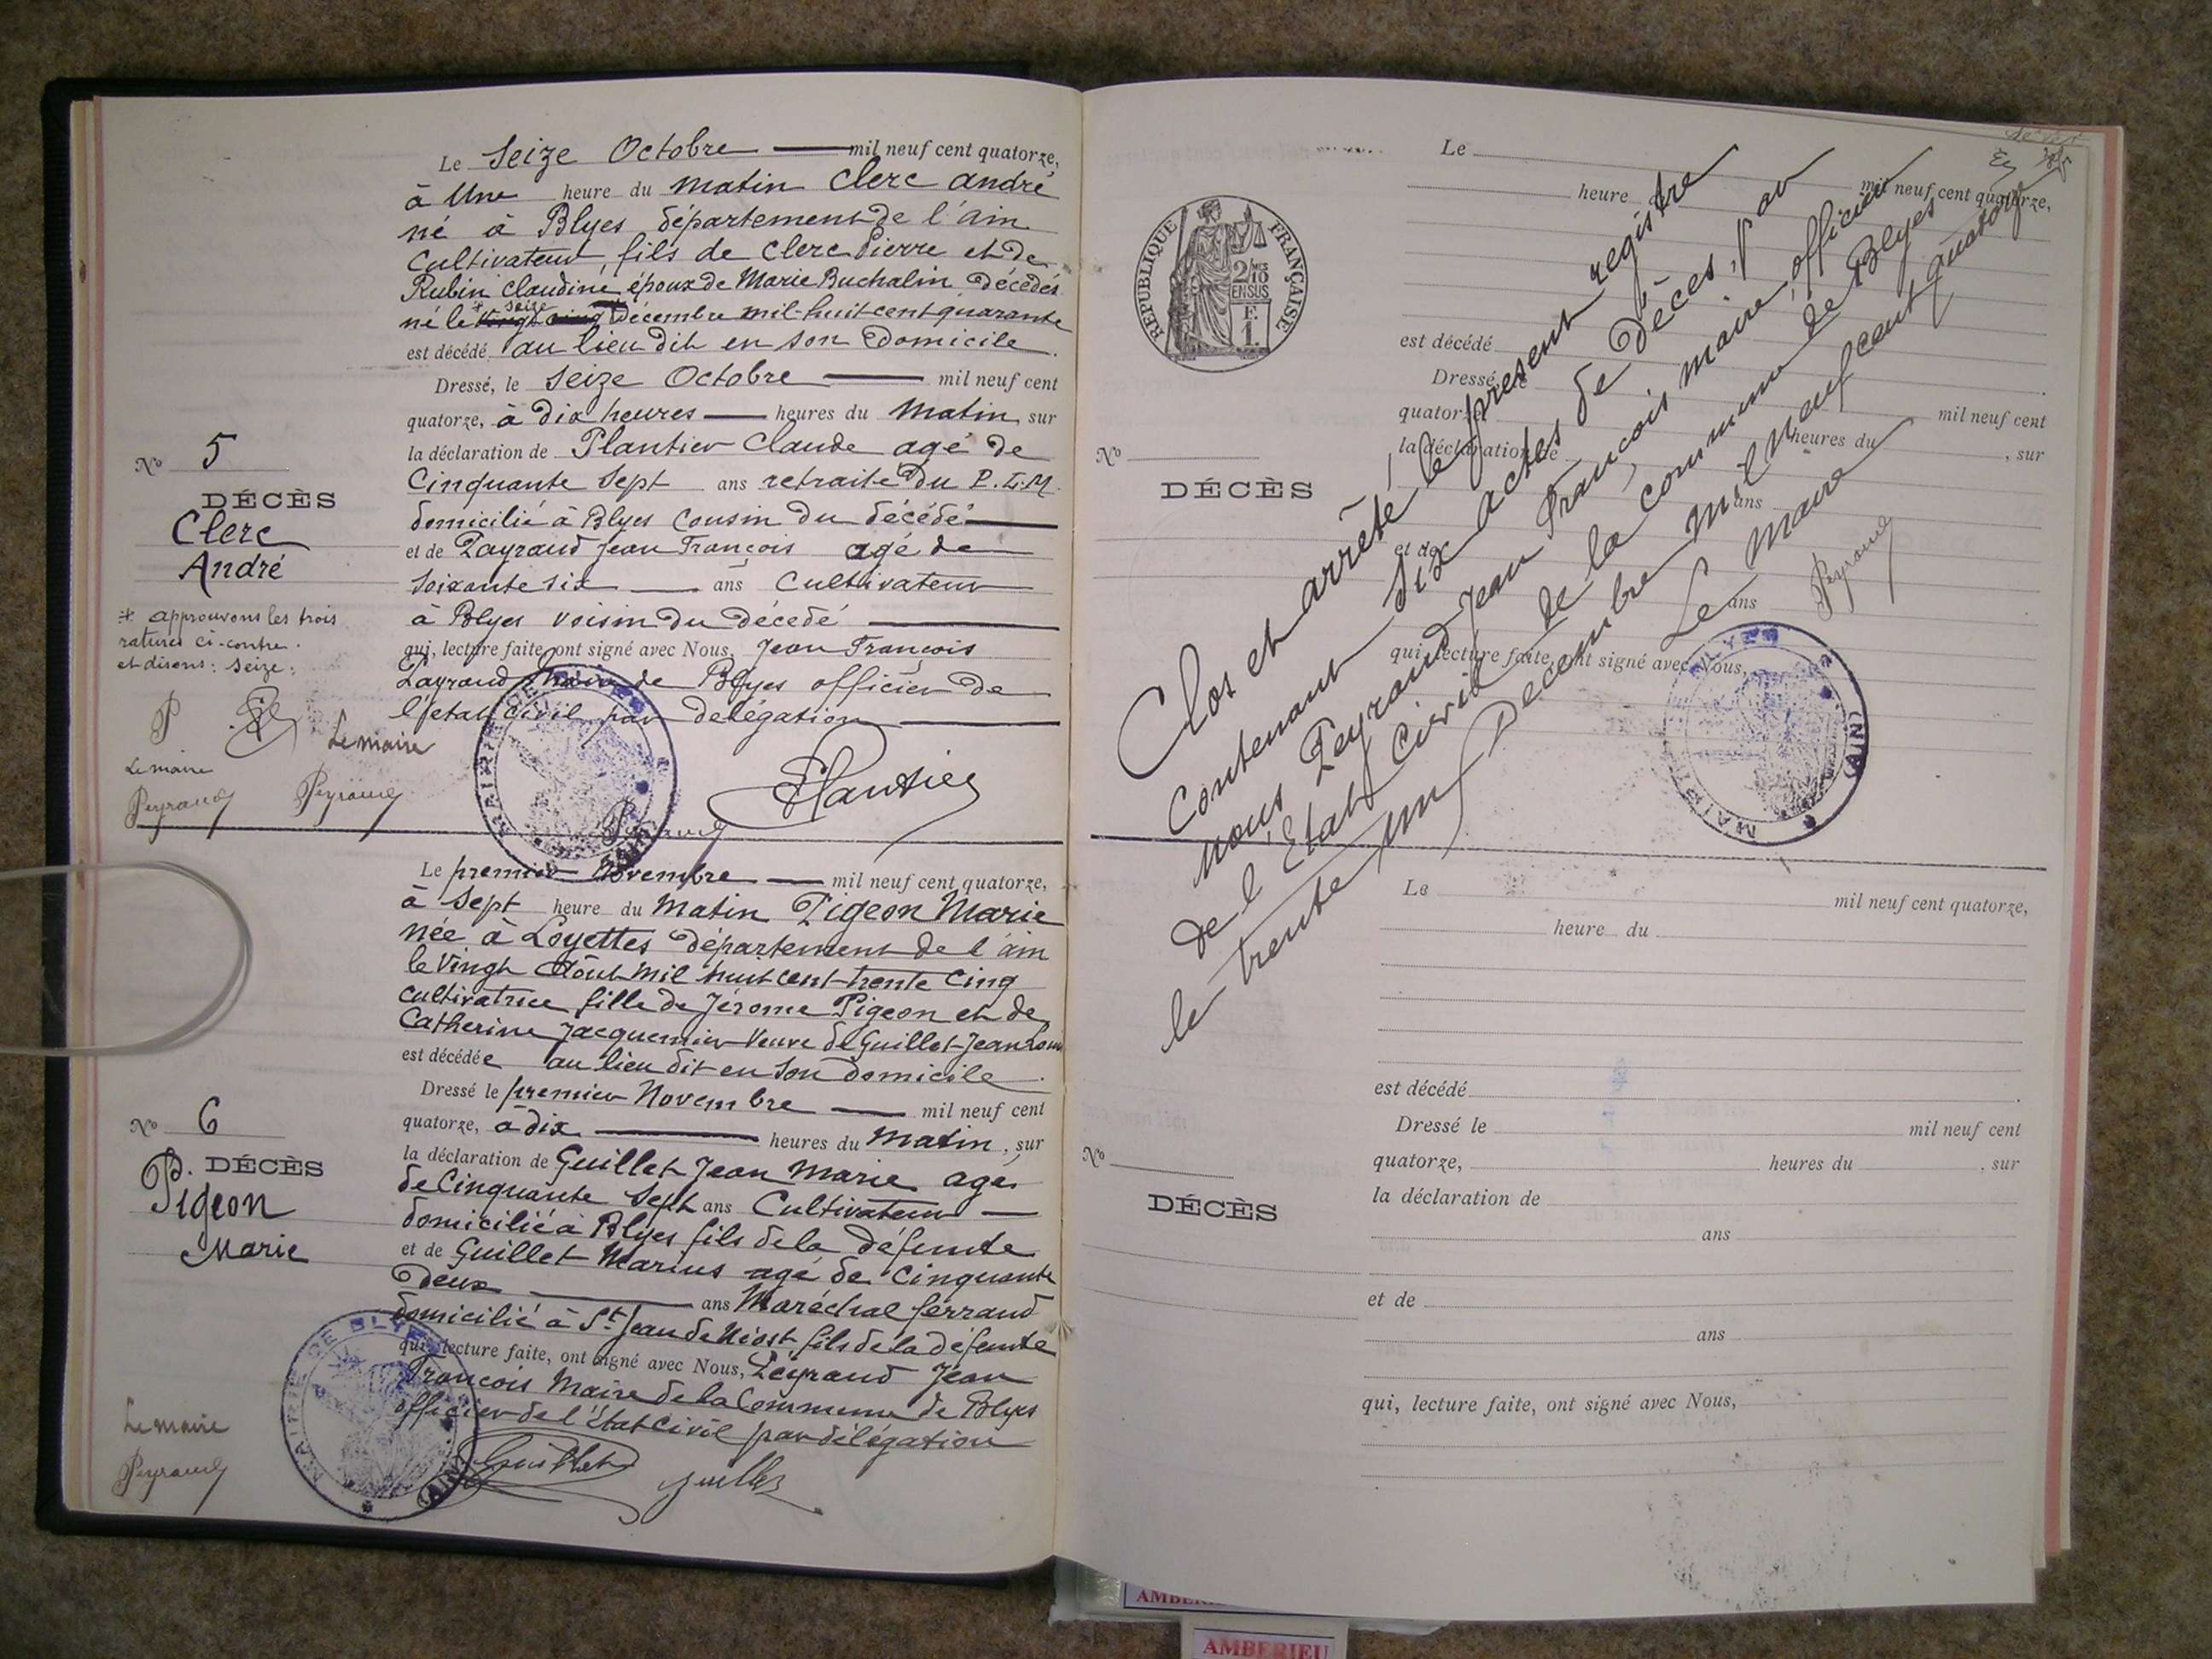 Le Seize Octobre mil neuf cent quatorze,
à Une heure du matin Clerc André
né à Blyes département de l'ain
Cultivateur, fils de Clerc Pierre et de
Rubin Claudine, époux de Marie Buchalin Décédés
né le * vingt cinq seize Décembre mil-huit cent quarante
est décédé au lieu dit en son Domicile.
Dressé, le Seize Octobre mil neuf cent
quatorze, à dix heures heures du Matin sur
la déclaration de Plantier Claude agé de
Cinquante Sept ans retraité du P.L.M.
domicilié à Blyes Cousin du décédé
et de Payraud Jean François agé de
Soixante six ans Cultivateur
à Blyes voisin du décédé
qui, lecture faite, ont signé avec Nous, Jean François
Payraud Maire de Blyes officier de
l'état Civil par délégation
Nº 5
DÉCÈS
Clerc
André
* approuvons les trois
ratures ci-contre.
et disons: seize:
P
Le maire
Le maire
Peyraud
Peyraud
Plantier
Peyraud
MAIRIE DE BLYES
Le premier Novembre mil neuf cent quatorze,
à Sept heure du Matin Pigeon Marie
née à Loyettes Département de l'ain
le Vingt Août mil huit cent trente Cinq
cultivatrice fille de Jérome Pigeon et de
Catherine Jacquemier Veuve de Guillet Jean Louis
est décédée au lieu dit en son domicile.
Dressé le premier Novembre mil neuf cent
quatorze, à dix heures du Matin, sur
la déclaration de Guillet Jean Marie agé
de Cinquante Sept ans Cultivateur
domicilié à Blyes fils de la défunte
et de Guillet Marius agé de Cinquante
Deux ans Maréchal ferrand
domicilié à St Jean de Niost, fils de la défunte
qui, lecture faite, ont signé avec Nous, Peyraud Jean
François Maire de la Commune de Blyes
officier de l'État Civil par délégation
Nº 6
P. DÉCÈS
Pigeon
Marie
Le maire
Peyraud
Guillet
Guillet
MAIRIE DE BLYES
(AIN)
RÉPUBLIQUE FRANÇAISE
2/10
EN SUS
F.
1.
Le
heure mil neuf cent quatorze,
est décédé
Dressé, le
mil neuf cent
quatorze heures du , sur
la déclaration de
ans
et de
ans
qui, lecture faite, ont signé avec Nous,
Nº
DÉCÈS
Clos et arrêté le présent registre
Contenant Six actes de Décès, par
nous Peyraud Jean François maire, officier
de l'État Civil de la commune de Blyes
le trente un Décembre Mil neuf cent quatorze
Le Maire
Peyraud
MAIRIE BLYES
(AIN)
Le mil neuf cent quatorze,
heure du
est décédé
Dressé le mil neuf cent
quatorze, heures du , sur
la déclaration de
ans
et de
ans
qui, lecture faite, ont signé avec Nous,
Nº
DÉCÈS
AMBERIEU